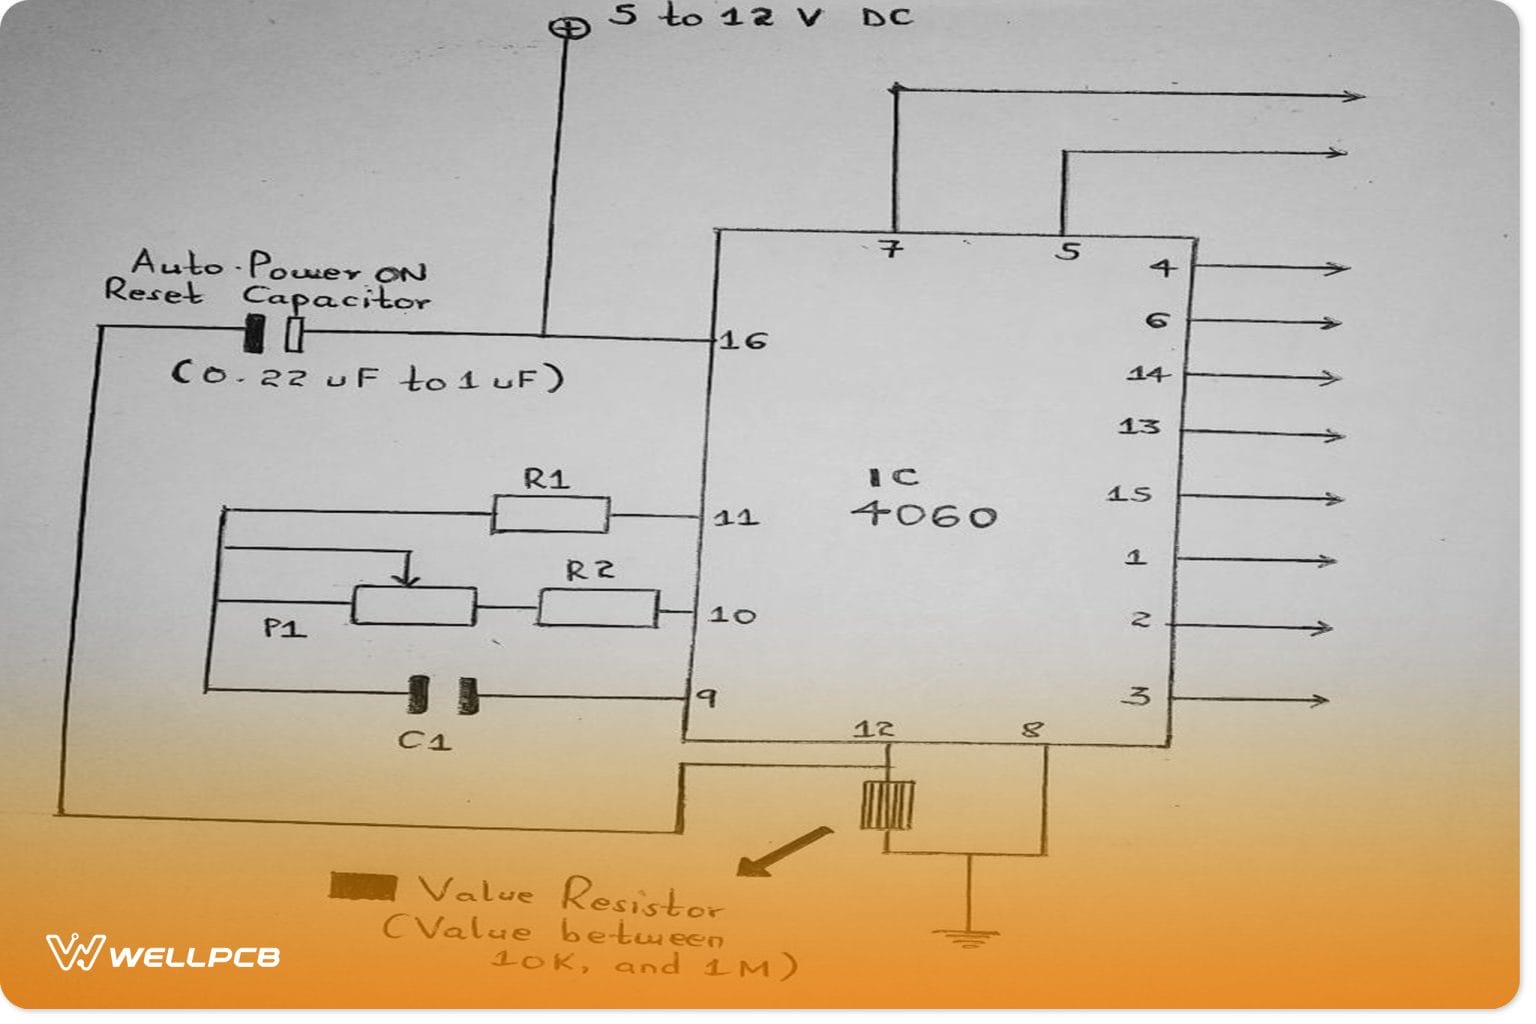 5 to 12 V DC
Auto Power ON
Reset Capacitor
(0.22 uF to 1 uF)
7
5
4
6
14
13
15
1
2
3
16
11
10
9
12
8
IC
4060
R1
R2
P1
C1
Value Resistor
(Value between
10K, and 1M)
WELLPCB